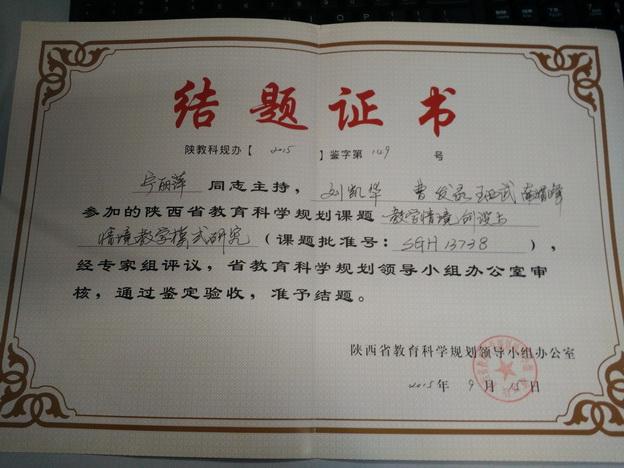 结题证书
陕教科规办【 2015 】鉴字第 149 号
宁丽萍 同志主持， 刘凯华 曹
参加的陕西省教育科学规划课题 教学情境创设与
情境教学模式研究 （课题批准号： SGH13738 ），
经专家组评议，省教育科学规划领导小组办公室审
核，通过鉴定验收，准予结题。
陕西省教育科学规划领导小组办公室
2015 年 9 月 15 日